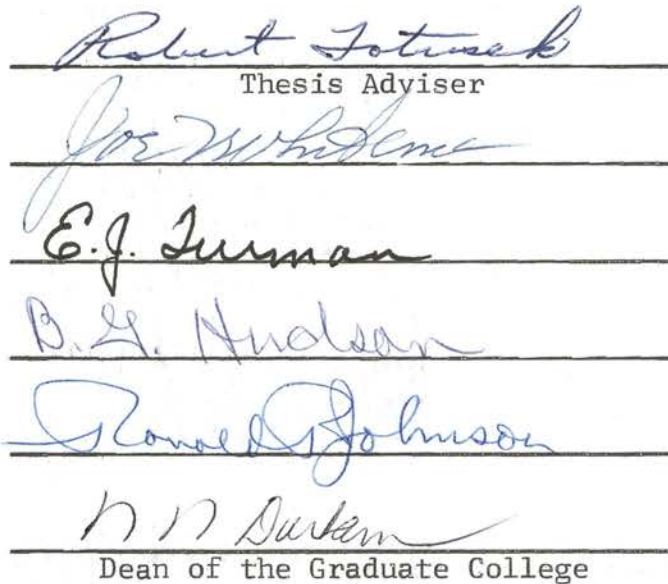 Robert Totusek
Thesis Adviser
Joe Whiteman
E.J. Turman
B.G. Hudson
Ronald Johnson
N N Durham
Dean of the Graduate College